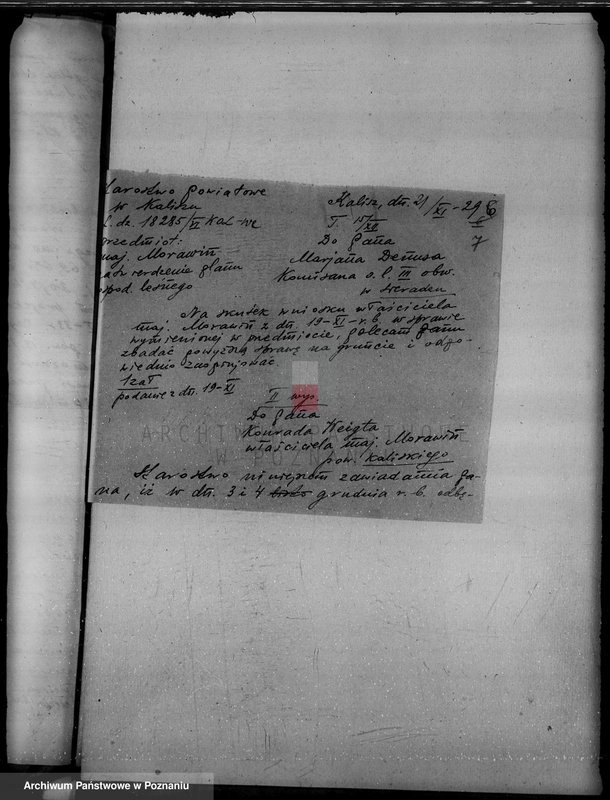 Starostwo Powiatowe
w Kaliszu
L. dz. 18285/VI Kal-we
Przedmiot:
maj. Morawin
zatwierdzenie planu
gospod. leśnego
Kalisz, dn. 21/XI-29
6
7
T. 15/XII
Do Pana
Marjana Demusa
Komisarza o. l. III obw.
w Sieradzu
Na skutek wniosku właściciela
maj. Morawin z dn. 19-XI-r.b. w sprawie
wymienionej w przedmiocie, polecam Panu
zbadać powyższą sprawę na gruncie i odpo-
wiednio zaopinjować.
1 zał
podanie z dn. 19-XI
II wyp.
Do Pana
Konrada
właściciela maj. Morawin
pow. kaliskiego
Starostwo niniejszem zawiadamia Pa-
na, iż w dn. 3 i 4 grudnia r. b. odbę-
ARCHIWUM PAŃSTWOWE
W POZNANIU
Archiwum Państwowe w Poznaniu